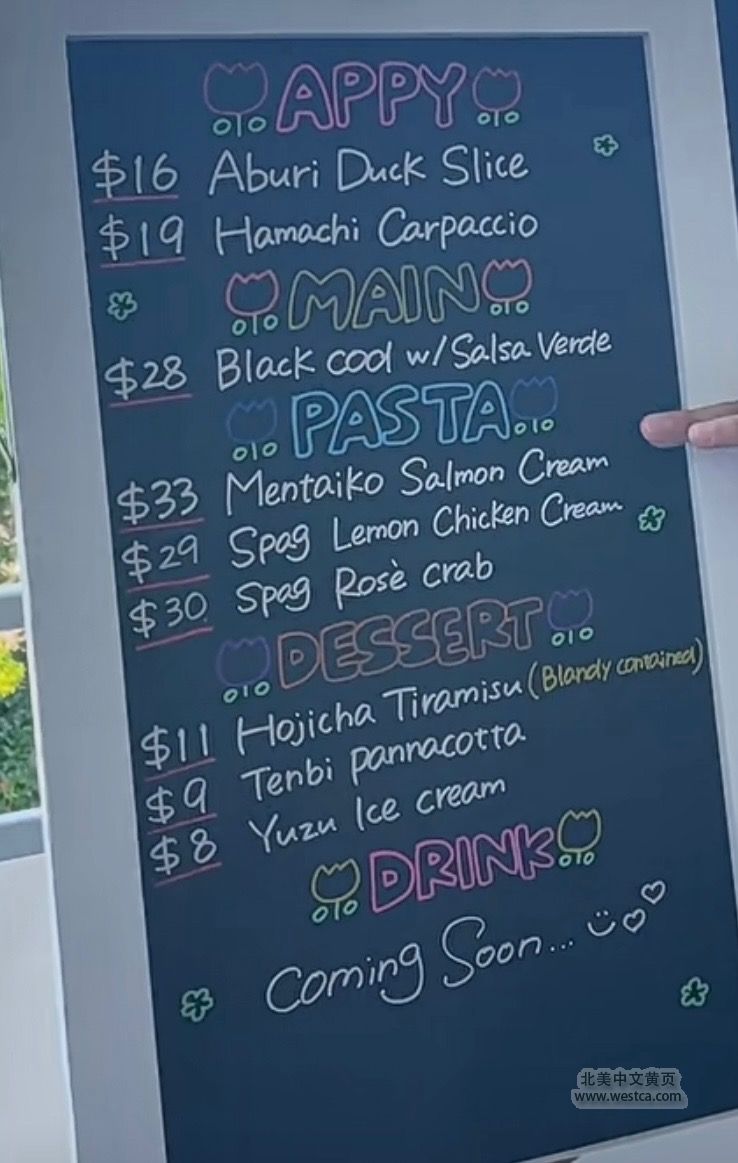 APPY
$16 Aburi Duck Slice
$19 Hamachi Carpaccio
MAIN
$28 Black cod w/Salsa Verde
PASTA
$33 Mentaiko Salmon Cream
$29 Spag Lemon Chicken Cream
$30 Spag Rosè crab
DESSERT
$11 Hojicha Tiramisu (Blandy contained)
$9 Tenbi pannacotta
$8 Yuzu Ice cream
DRINK
Coming Soon...
北美中文黄页
www.westca.com